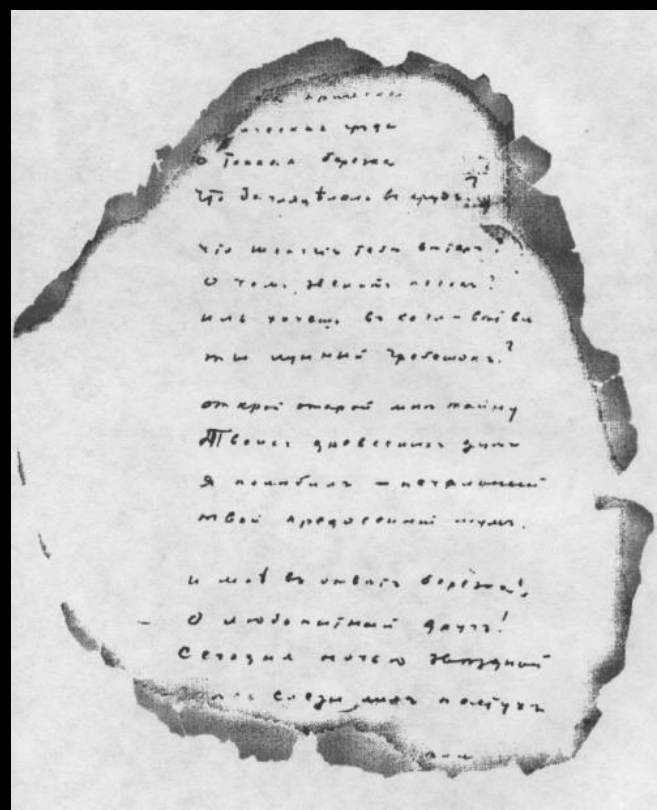 прическа
ическая грудь
О Тонкая березка
Что Заглядѣлась въ прудъ?
что шепчетъ тебѣ вѣтеръ?
О чемъ звенитъ песокъ?
иль хочешь въ косы-вѣтви
ты лунный гребешокъ?
открой открой мнѣ тайну
Твоихъ древесныхъ думъ
Я полюбилъ — печальный
твой предосенний шумъ.
и мнѣ въ отвѣтъ берёзка:
О любопытный другъ!
Сегодня ночью звездной
слезы лилъ пастухъ